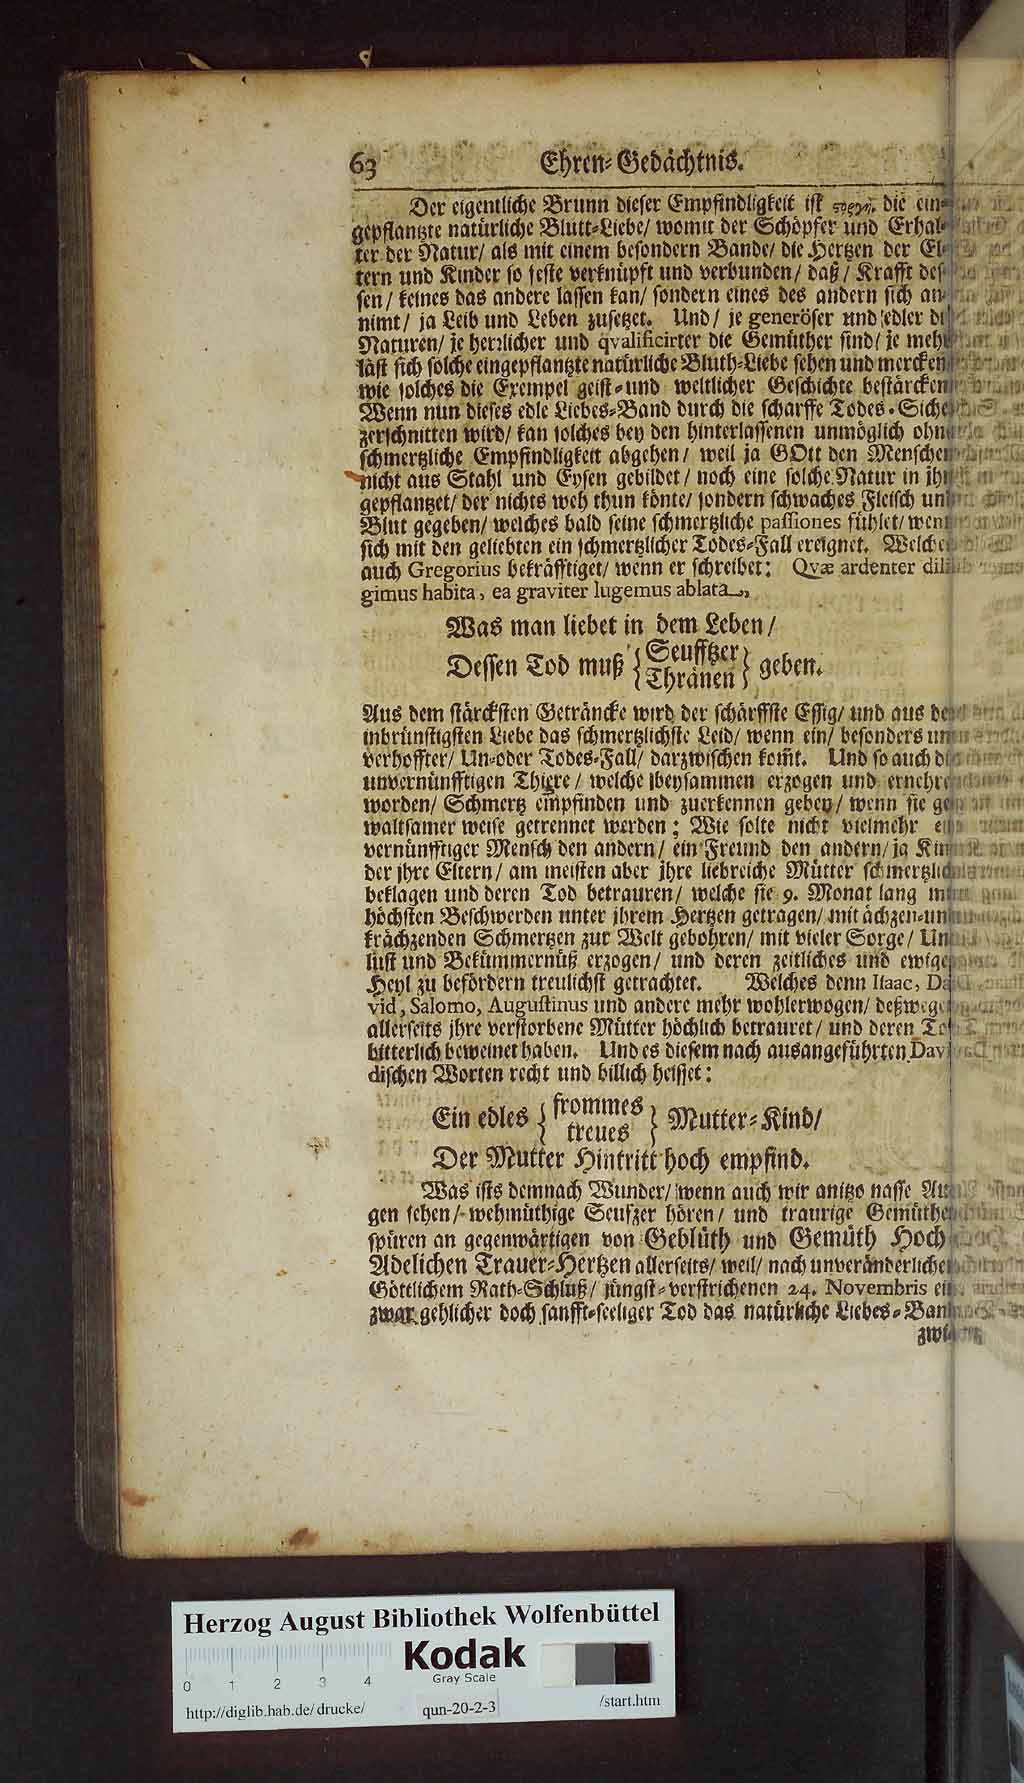 63 Ehren-Gedächtnis.
Der eigentliche Brunn dieser Empfindligkeit ist die ein-
gepflantzte natürliche Blutt-Liebe/ womit der Schöpfer und Erhal-
ter der Natur/ als mit einem besondern Bande/ die Hertzen der El-
tern und Kinder so feste verknüpft und verbunden/ daß/ Krafft des-
sen/ keines das andere lassen kan/ sondern eines des andern sich an-
nimt/ ja Leib und Leben zusetzet. Und/ je generöser und edler di
Naturen/ je herrlicher und qvalificirter die Gemüther sind/ je meh
läst sich solche eingepflantzte natürliche Bluth-Liebe sehen und mercken
wie solches die Exempel geist-und weltlicher Geschichte bestärcken
Wenn nun dieses edle Liebes-Band durch die scharffe Todes-Siche
zerschnitten wird/ kan solches bey den hinterlassenen unmöglich ohn
schmertzliche Empfindligkeit abgehen/ weil ja GOtt den Mensche
nicht aus Stahl und Eysen gebildet/ noch eine solche Natur in jh
gepflantzet/ der nichts weh thun könte/ sondern schwaches Fleisch un
Blut gegeben/ welches bald seine schmertzliche passiones fühlet/ wen
sich mit den geliebten ein schmertzlicher Todes-Fall ereignet. Welche
auch Gregorius bekräfftiget/ wenn er schreibet: Qvæ ardenter dili
gimus habita, ea graviter lugemus ablata,
Was man liebet in dem Leben/
Dessen Tod muß { Seufftzer
Thränen } geben.
Aus dem stärcksten Geträncke wird der schärffste Essig/ und aus de
inbrünstigsten Liebe das schmertzlichste Leid/ wenn ein/ besonders un
verhoffter/ Un-oder Todes-Fall/ darzwischen kom̃t. Und so auch di
unvernünfftigen Thiere/ welche beysammen erzogen und ernehre
worden/ Schmertz empfinden und zuerkennen geben/ wenn sie ge
waltsamer weise getrennet werden; Wie solte nicht vielmehr ei
vernünfftiger Mensch den andern/ ein Freund den andern/ ja Kin
der jhre Eltern/ am meisten aber jhre liebreiche Mütter schmertzlich
beklagen und deren Tod betrauren/ welche sie 9. Monat lang mi
höchsten Beschwerden unter jhrem Hertzen getragen/ mit ächzen-un
krächzenden Schmertzen zur Welt gebohren/ mit vieler Sorge/ Un
lust und Bekümmernüß erzogen/ und deren zeitliches und ewige
Heyl zu befördern treulichst getrachtet. Welches denn Isaac, Da
vid, Salomo, Augustinus und andere mehr wohlerwogen/ deßwege
allerseits jhre verstorbene Mütter höchlich betrauret/ und deren To
bitterlich beweinet haben. Und es diesem nach ausangeführten Davi
dischen Worten recht und billich heisset:
Ein edles { frommes
treues } Mutter-Kind/
Der Mutter Hintritt hoch empfind.
Was ists demnach Wunder/ wenn auch wir anitzo nasse Au
gen sehen/ wehmüthige Seufzer hören/ und traurige Gemüthe
spüren an gegenwärtigen von Geblüth und Gemüth Hoch
Adelichen Trauer-Hertzen allerseits/ weil/ nach unveränderliche
Göttlichem Rath-Schluß/ jüngst-verstrichenen 24. Novembris ein
zwar gehlicher doch sanfft-seeliger Tod das natürliche Liebes-Ban
zwi
Herzog August Bibliothek Wolfenbüttel
Kodak
Gray Scale
0 1 2 3 4
http://diglib.hab.de/drucke/ qun-20-2-3 /start.htm